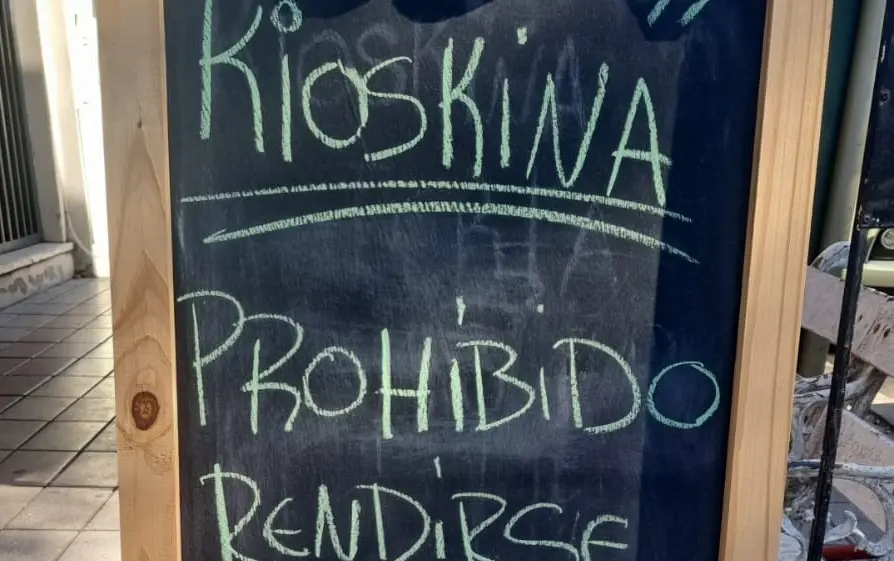 KiOSKiNA
PROHiBiDO
RENDiRSE